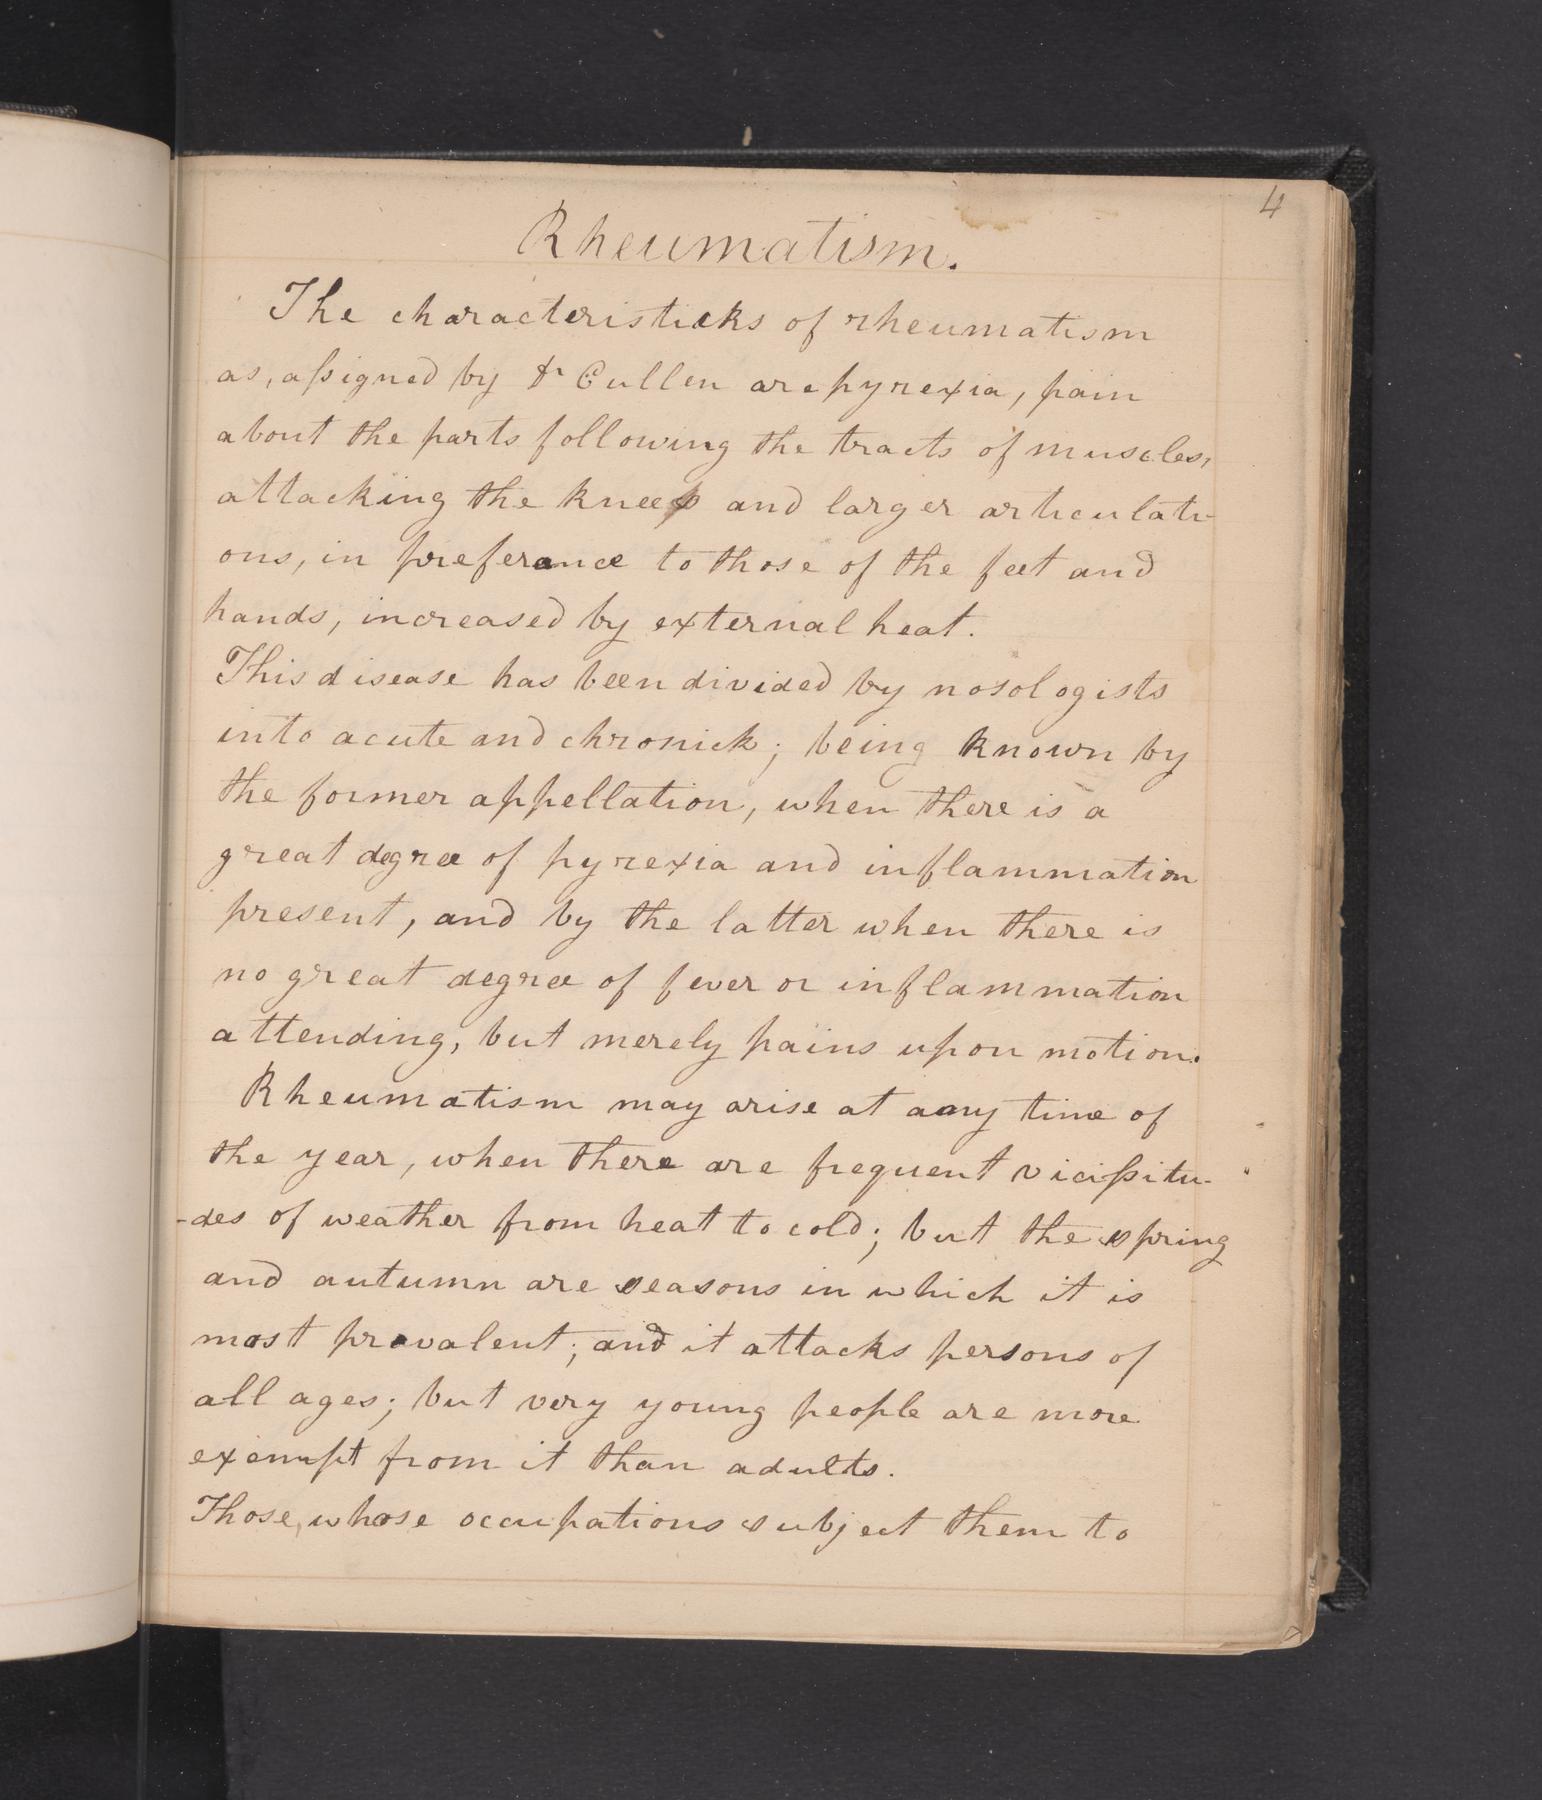 4
Rheumatism.
The characteristicks of rheumatism
as, assigned by Dr Cullen are pyrexia, pain
about the parts following the tracts of muscles,
attacking the knees and larger articulati-
ons, in preferance to those of the feet and
hands, increased by external heat.
This disease has been divided by nosologists
into acute and chronick; being known by
the former appellation, when there is a
great degree of pyrexia and inflammation
present, and by the latter when there is
no great degree of fever or inflammation
attending, but merely pains upon motion.
Rheumatism may arise at any time of
the year, when there are frequent vicissitu-
-des of weather from heat to cold; but the spring
and autumn are seasons in which it is
most prevalent; and it attacks persons of
all ages; but very young people are more
exempt from it than adults.
Those, whose occupations subject them to